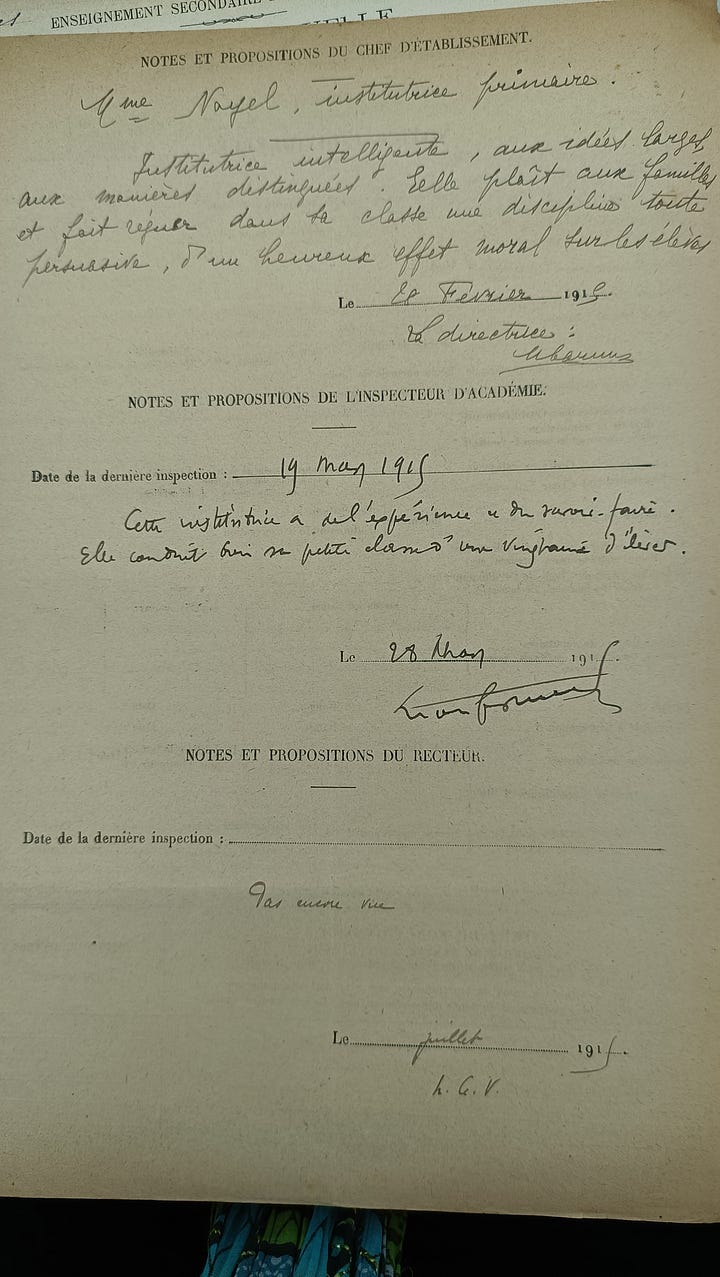 ENSEIGNEMENT SECONDAIRE
NOTES ET PROPOSITIONS DU CHEF D'ÉTABLISSEMENT.
Mme Noyel, institutrice primaire.
Institutrice intelligente, aux idées larges,
aux manières distinguées. Elle plaît aux familles
et fait régner dans sa classe une discipline toute
persuasive, d'un heureux effet moral sur les élèves
Le 28 Février 1915.
La directrice :
NOTES ET PROPOSITIONS DE L'INSPECTEUR D'ACADÉMIE.
Date de la dernière inspection : 19 mars 1915
Cette institutrice a de l'expérience et du savoir-faire.
Elle conduit bien sa petite classe d'une vingtaine d'élèves.
Le 28 Mars 1915.
NOTES ET PROPOSITIONS DU RECTEUR.
Date de la dernière inspection :
Pas encore vue
Le juillet 1915.